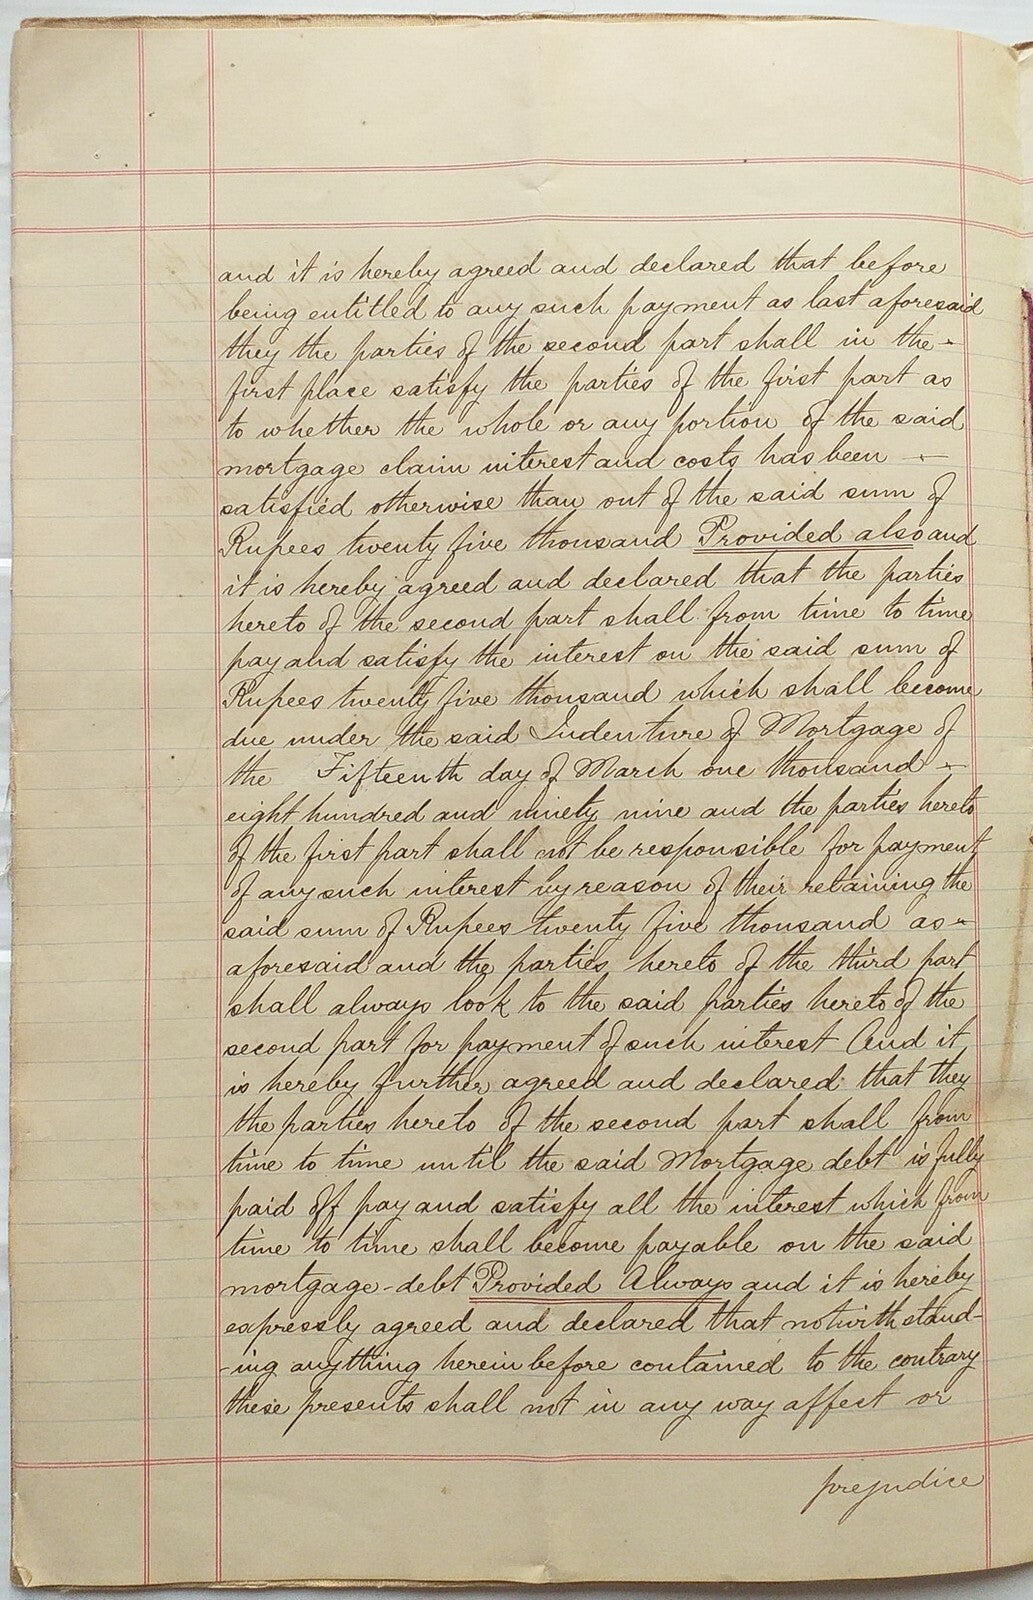 and it is hereby agreed and declared that before
being entitled to any such payment as last aforesaid
they the parties of the second part shall in the -
first place satisfy the parties of the first part as
to whether the whole or any portion of the said
mortgage claim interest and costs has been —
satisfied otherwise than out of the said sum of
Rupees twenty five thousand Provided also and
it is hereby agreed and declared that the parties
hereto of the second part shall from time to time
pay and satisfy the interest on the said sum of
Rupees twenty five thousand which shall become
due under the said Indenture of Mortgage of
the Fifteenth day of March one thousand —
eight hundred and ninety nine and the parties hereto
of the first part shall not be responsible for payment
of any such interest by reason of their retaining the
said sum of Rupees twenty five thousand as -
aforesaid and the parties hereto of the third part
shall always look to the said parties hereto of the
second part for payment of such interest And it
is hereby further agreed and declared that they
the parties hereto of the second part shall from
time to time until the said Mortgage debt is fully
paid off pay and satisfy all the interest which from
time to time shall become payable on the said
mortgage-debt Provided Always and it is hereby
expressly agreed and declared that notwithstand-
-ing anything herein before contained to the contrary
these presents shall not in any way affect or
prejudice